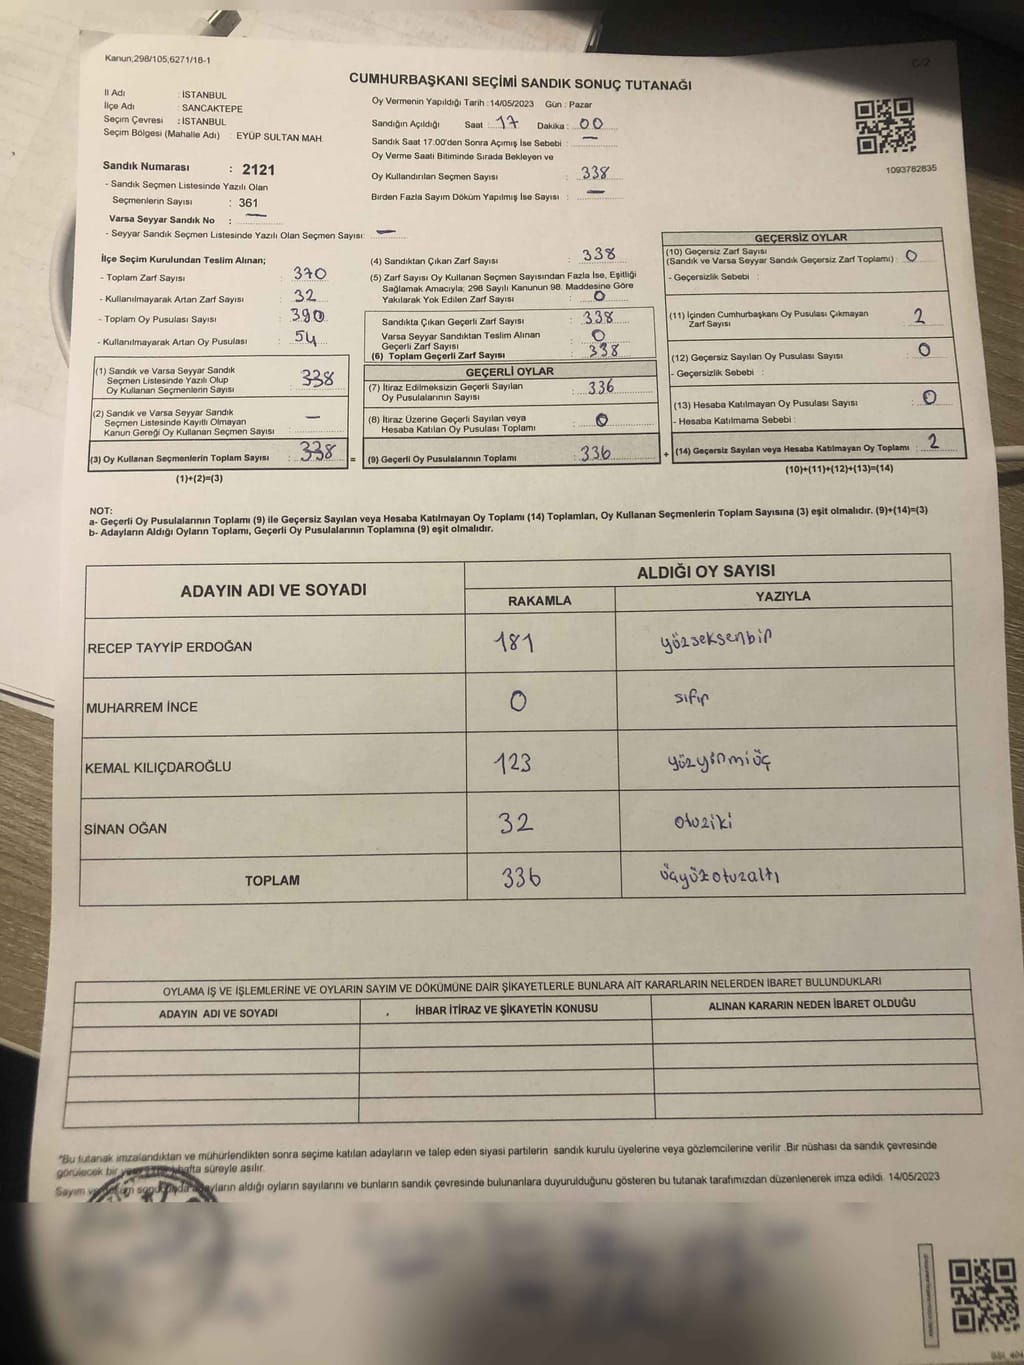 Kanun,298/105,6271/18-1
C/2
CUMHURBAŞKANI SEÇİMİ SANDIK SONUÇ TUTANAĞI
İl Adı : İSTANBUL
İlçe Adı : SANCAKTEPE
Seçim Çevresi : İSTANBUL
Seçim Bölgesi (Mahalle Adı) : EYÜP SULTAN MAH.
Sandık Numarası : 2121
- Sandık Seçmen Listesinde Yazılı Olan
Seçmenlerin Sayısı : 361
Varsa Seyyar Sandık No : —
- Seyyar Sandık Seçmen Listesinde Yazılı Olan Seçmen Sayısı: —
Oy Vermenin Yapıldığı Tarih :14/05/2023 Gün : Pazar
Sandığın Açıldığı Saat : 17 Dakika : 00
Sandık Saat 17:00'den Sonra Açımış İse Sebebi : —
Oy Verme Saati Bitiminde Sırada Bekleyen ve
Oy Kullandırılan Seçmen Sayısı : 338
Birden Fazla Sayım Döküm Yapılmış İse Sayısı : —
1093782835
İlçe Seçim Kurulundan Teslim Alınan;
- Toplam Zarf Sayısı : 370
- Kullanılmayarak Artan Zarf Sayısı : 32
- Toplam Oy Pusulası Sayısı : 390
- Kullanılmayarak Artan Oy Pusulası : 54
(1) Sandık ve Varsa Seyyar Sandık
Seçmen Listesinde Yazılı Olup
Oy Kullanan Seçmenlerin Sayısı : 338
(2) Sandık ve Varsa Seyyar Sandık
Seçmen Listesinde Kayıtlı Olmayan
Kanun Gereği Oy Kullanan Seçmen Sayısı : —
(3) Oy Kullanan Seçmenlerin Toplam Sayısı : 338 =
(1)+(2)=(3)
(4) Sandıktan Çıkan Zarf Sayısı : 338
(5) Zarf Sayısı Oy Kullanan Seçmen Sayısından Fazla İse, Eşitliği
Sağlamak Amacıyla; 298 Sayılı Kanunun 98. Maddesine Göre
Yakılarak Yok Edilen Zarf Sayısı : 0
Sandıkta Çıkan Geçerli Zarf Sayısı : 338
Varsa Seyyar Sandıktan Teslim Alınan
Geçerli Zarf Sayısı : 0
(6) Toplam Geçerli Zarf Sayısı : 338
GEÇERLİ OYLAR
(7) İtiraz Edilmeksizin Geçerli Sayılan
Oy Pusulalarının Sayısı : 336
(8) İtiraz Üzerine Geçerli Sayılan veya
Hesaba Katılan Oy Pusulası Toplamı : 0
(9) Geçerli Oy Pusulalarının Toplamı : 336 +
GEÇERSİZ OYLAR
(10) Geçersiz Zarf Sayısı
(Sandık ve Varsa Seyyar Sandık Geçersiz Zarf Toplamı) : 0
- Geçersizlik Sebebi :
(11) İçinden Cumhurbaşkanı Oy Pusulası Çıkmayan
Zarf Sayısı : 2
(12) Geçersiz Sayılan Oy Pusulası Sayısı : 0
- Geçersizlik Sebebi :
(13) Hesaba Katılmayan Oy Pusulası Sayısı : 0
- Hesaba Katılmama Sebebi :
(14) Geçersiz Sayılan veya Hesaba Katılmayan Oy Toplamı : 2
(10)+(11)+(12)+(13)=(14)
NOT:
a- Geçerli Oy Pusulalarının Toplamı (9) ile Geçersiz Sayılan veya Hesaba Katılmayan Oy Toplamı (14) Toplamları, Oy Kullanan Seçmenlerin Toplam Sayısına (3) eşit olmalıdır. (9)+(14)=(3)
b- Adayların Aldığı Oyların Toplamı, Geçerli Oy Pusulalarının Toplamına (9) eşit olmalıdır.
ADAYIN ADI VE SOYADI ALDIĞI OY SAYISI
RAKAMLA YAZIYLA
RECEP TAYYİP ERDOĞAN 181 yüzseksenbir
MUHARREM İNCE 0 sıfır
KEMAL KILIÇDAROĞLU 123 yüzyirmiüç
SİNAN OĞAN 32 otuziki
TOPLAM 336 üçyüzotuzaltı
OYLAMA İŞ VE İŞLEMLERİNE VE OYLARIN SAYIM VE DÖKÜMÜNE DAİR ŞİKAYETLERLE BUNLARA AİT KARARLARIN NELERDEN İBARET BULUNDUKLARI
ADAYIN ADI VE SOYADI İHBAR İTİRAZ VE ŞİKAYETİN KONUSU ALINAN KARARIN NEDEN İBARET OLDUĞU
*Bu tutanak imzalandıktan ve mühürlendikten sonra seçime katılan adayların ve talep eden siyasi partilerin sandık kurulu üyelerine veya gözlemcilerine verilir .Bir nüshası da sandık çevresinde
görülecek bir hafta süreyle asılır.
Sayım aldığı oyların sayılarını ve bunların sandık çevresinde bulunanlara duyurulduğunu gösteren bu tutanak tarafımızdan düzenlenerek imza edildi. 14/05/2023